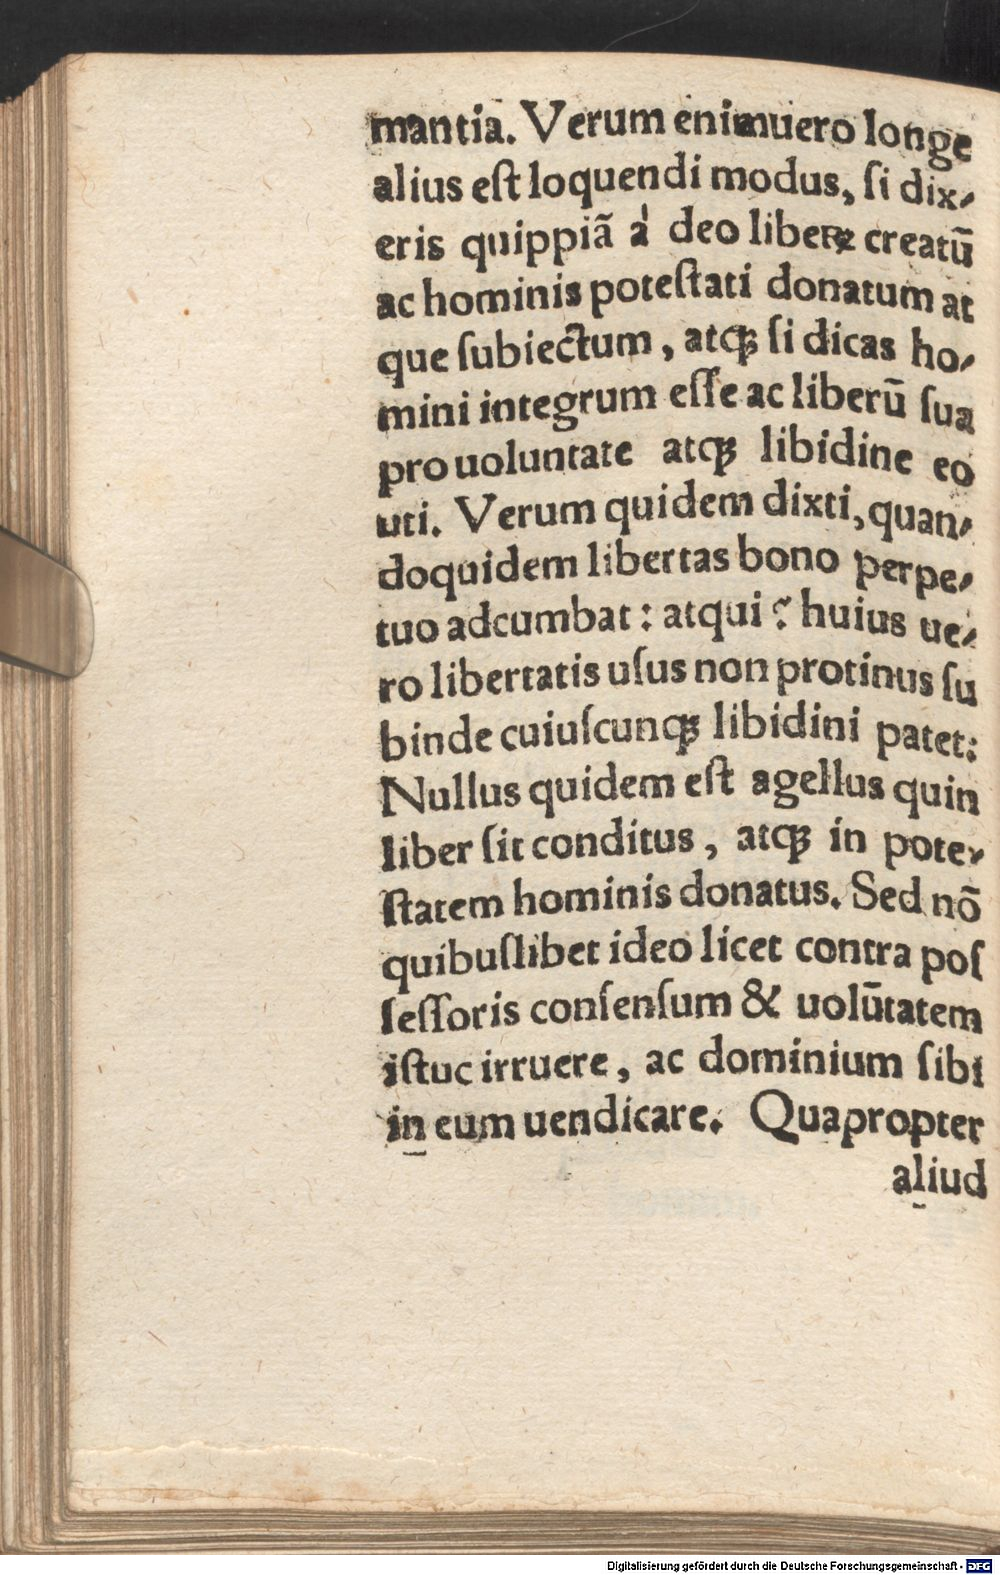 mantia. Verum enimuero longe
alius eſt loquendi modus, ſi dix⸗
eris quippiã à deo liberꝝ creatũ
ac hominis poteſtati donatum at
que ſubiectum, atqꝫ ſi dicas ho⸗
mini integrum eſſe ac liberũ ſua
pro uoluntate atqꝫ libidine eo
uti. Verum quidem dixti, quan⸗
doquidem libertas bono perpe⸗
tuo adcumbat: atqui ? huius ue⸗
ro libertatis uſus non protinus ſu
binde cuiuſcunqꝫ libidini patet:
Nullus quidem eſt agellus quin
liber ſit conditus, atqꝫ in pote⸗
ſtatem hominis donatus. Sed nõ
quibuſlibet ideo licet contra poſ
ſeſſoris conſenſum & uolũtatem
iſtuc irruere, ac dominium ſibi
in eum uendicare. Quapropter
aliud
Digitalisierung gefördert durch die Deutsche Forschungsgemeinschaft - DFG